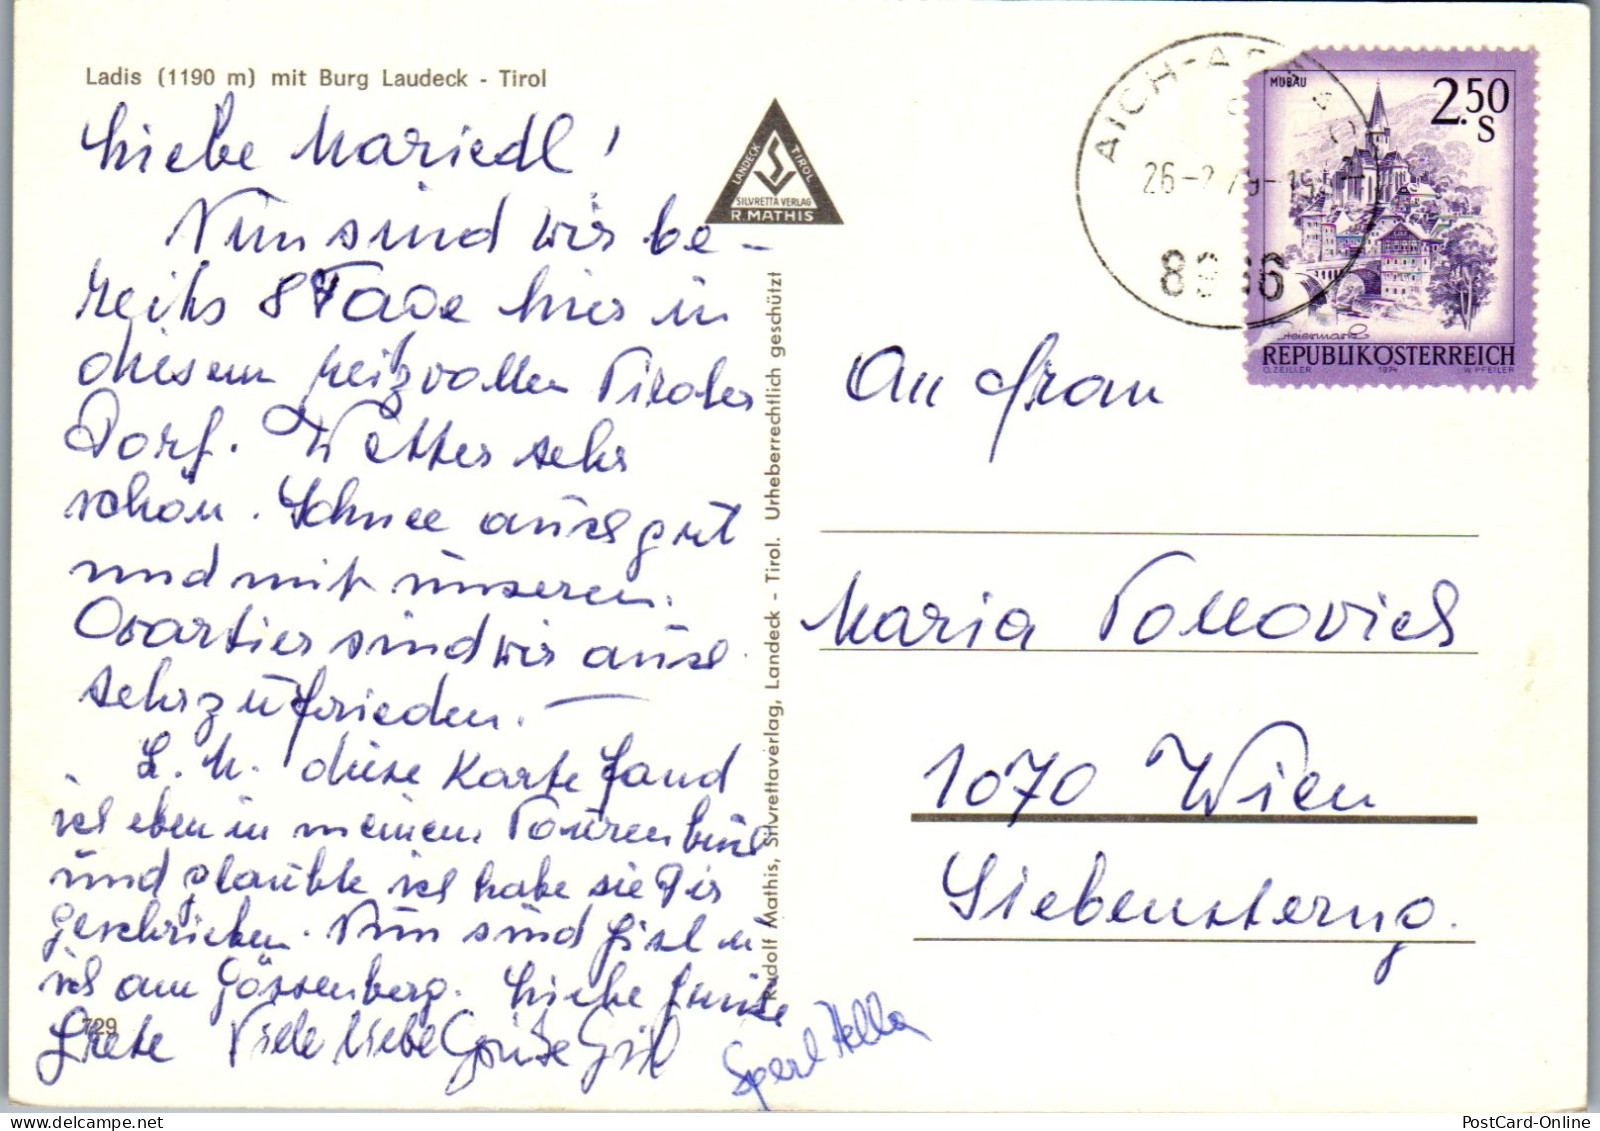 Ladis (1190 m) mit Burg Laudeck - Tirol
Liebe Mariedl!
Nun sind wir be-
reits 8 Tage hier in
diesem reizvollen Tiroler
Dorf. Wetter sehr
schön. Schnee auch gut
und mit unserem
Quartier sind wir auch
sehr zufrieden. —
L. M. diese Karte fand
ich eben in meinem Tourenbuch
und glaubte ich habe sie Dir
geschrieben. Nun sind Gisl u
ich am Gössenberg. Liebe Grüße
Grete Viele liebe Grüße Gisl
Sperl Hella
729
LANDECK TIROL
SILVRETTA VERLAG
R. MATHIS
Rudolf Mathis, Silvrettaverlag, Landeck - Tirol. Urheberrechtlich geschützt
AICH-A
26
8966
MURAU
2.50
S
Steiermark
REPUBLIK ÖSTERREICH
O. ZEILLER 1974 W. PFEILER
An Frau
Maria
1070 Wien
Siebensterng.
PostCard-Online